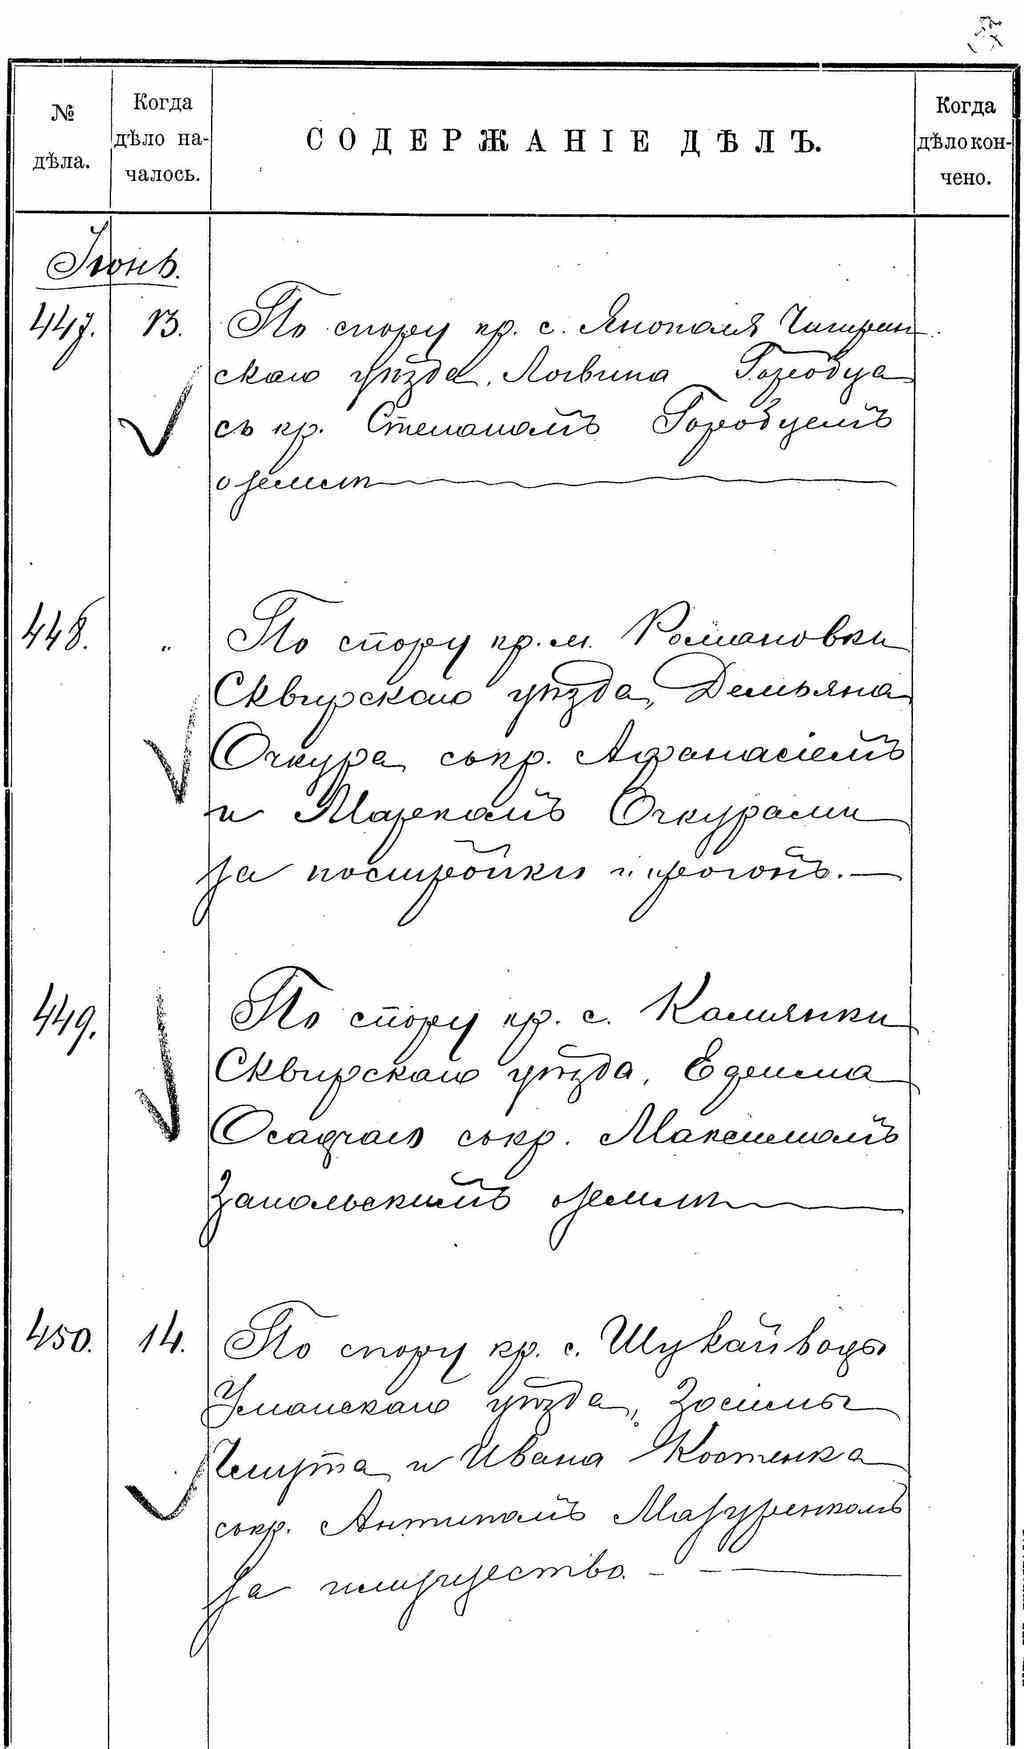 № дѣла.
Когда дѣло на-чалось.
СОДЕРЖАНІЕ ДѢЛЪ.
Когда дѣло кон-чено.
Іюнь.
447. 13. По спору кр. с. Янополя Чигирин
скаго уѣзда, Логвина Горобца
съ кр. Степаномъ Горобцемъ
о землѣ
448. " По спору кр. м. Романовки
Сквирскаго уѣзда, Демьяна
Очкура съ кр. Афанасіемъ
и Маркомъ Очкурами
за постройки и прогонъ.
449. По спору кр. с. Камянки
Сквирскаго уѣзда, Ефима
Осадчаго съ кр. Максимомъ
Запольскимъ о землѣ
450. 14. По спору кр. с. Шукайводы
Уманскаго уѣзда, Зосимы
и Ивана Костенка
съ кр. Антипомъ Мазуренкомъ
за имущество.